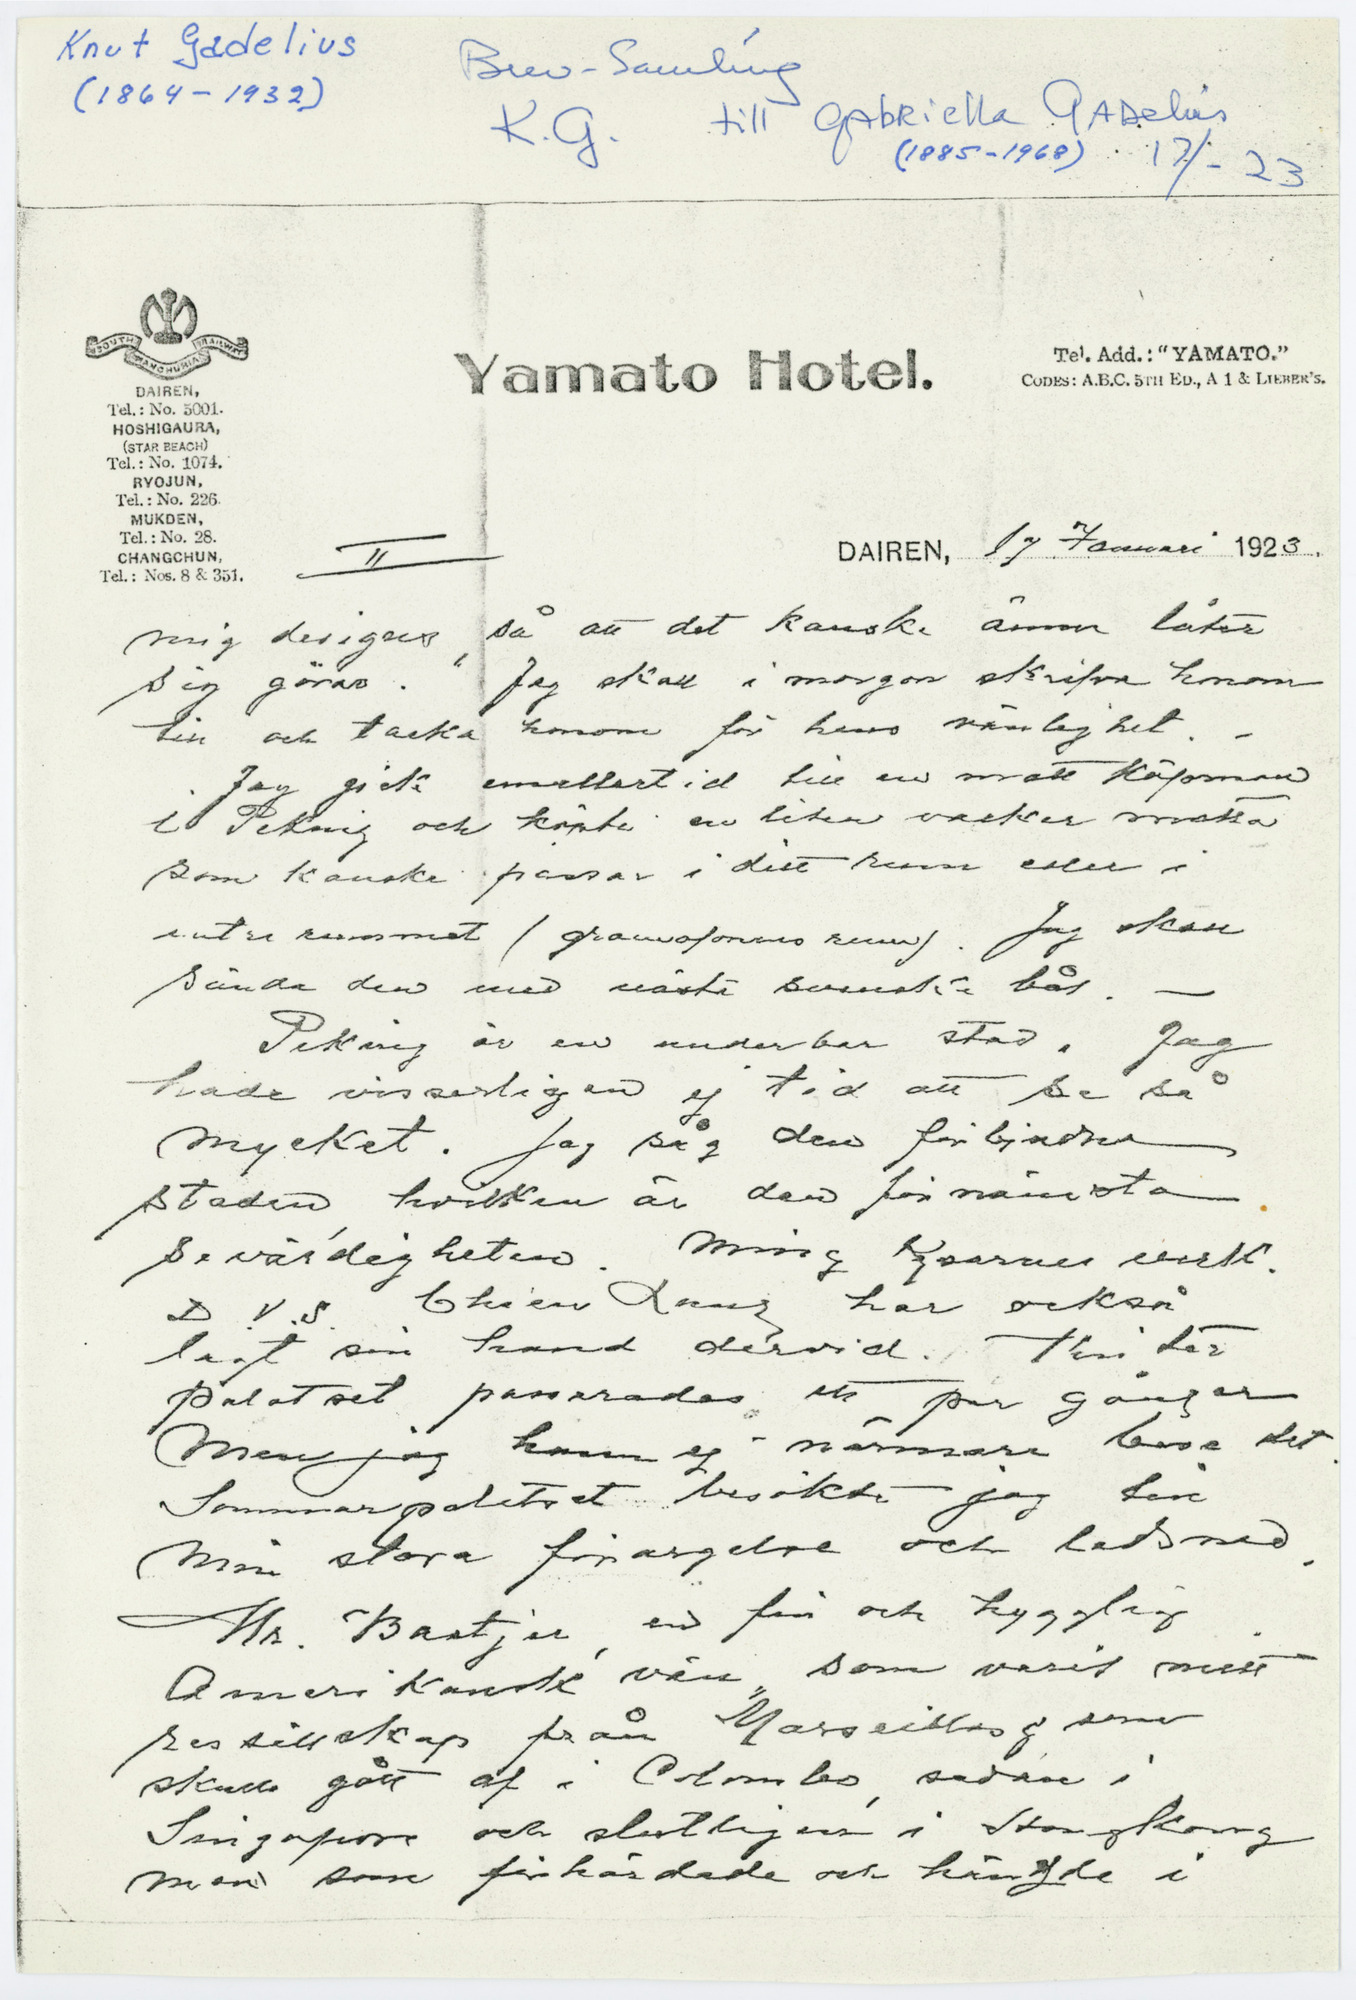 Knut Gadelius
(1864-1932)
Brev-Samling
K.G. till Gabriella Gadelius
(1885-1968) 17/1-23
SOUTH MANCHURIA RAILWAY
DAIREN,
Tel.: No. 5001.
HOSHIGAURA,
(STAR BEACH)
Tel.: No. 1074.
RYOJUN,
Tel.: No. 226.
MUKDEN,
Tel.: No. 28.
CHANGCHUN,
Tel.: Nos. 8 & 351.
Yamato Hotel.
Tel. Add.: "YAMATO."
CODES: A.B.C. 5TH ED., A 1 & LIEBER'S.
II
DAIREN, 17 Januari 1923.
mig så att det kanske ännu låter
sig göras. Jag skall i morgon skrifva honom
till och tacka honom för hans vänlighet. -
Jag gick emellertid till en matt köpman
i Peking och köpte en liten vacker matta
som kanske passar i ditt rum eller i
yttre rummet (gramofonens rum). Jag skall
sända den med nästa svenska båt. —
Peking är en underbar stad. Jag
hade visserligen ej tid att se så
mycket. Jag såg den förbjudna
staden hvilken är den förnämsta
sevärdigheten. Ming Kejsarnes verk.
D.V.S. Chien Lung har också
lagt sin hand dervid. Vinter
palatset passerades ett par gånger
Men jag hann ej närmare bese det.
Sommarpalatset besökte jag till
min stora förargelse och ledsnad.
Mr. Bastjer, en fin och hygglig
Amerikansk vän, som varit mitt
ressällskap från Marseilles och som
skulle gått af i Colombo, sedan i
Singapore och slutligen i HongKong
men som förhärdade och hängde i